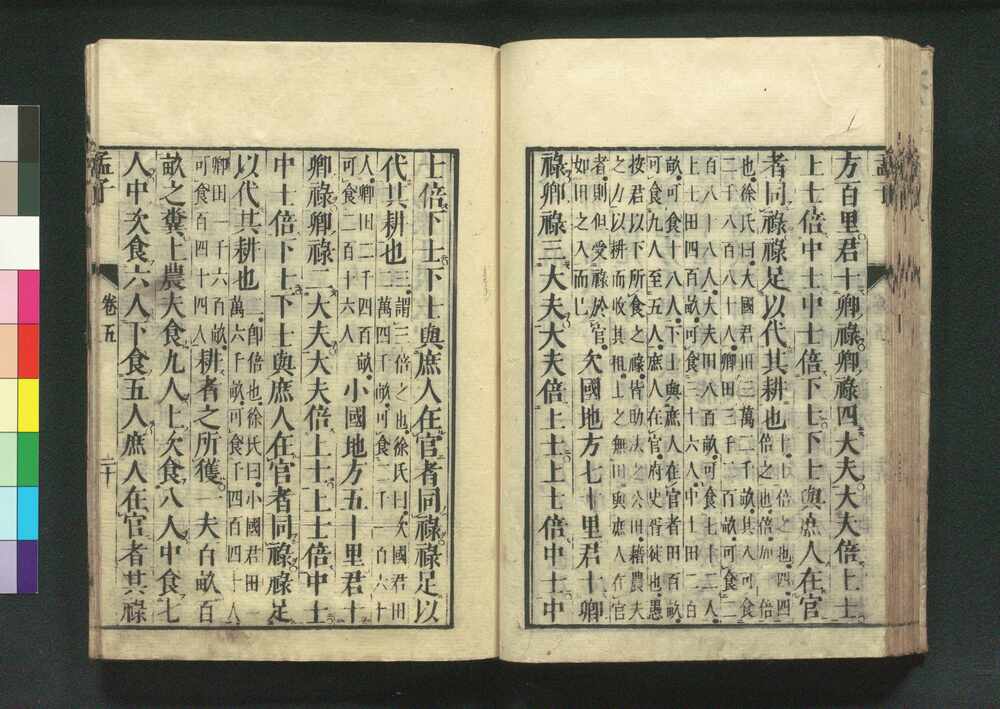 方百里君十卿祿卿祿四大夫大夫倍上士
上士倍中士中士倍下士下士與庶人在官
者同祿祿足以代其耕也
十十倍之也四四倍之也倍加一倍
也徐氏曰大國君田三萬二千畝其入可食
二千八百八十人卿田三千二百畝可食二
百八十八人大夫田八百畝可食七十二人
上士田四百畝可食三十六人中士田二百
畝可食十八人下士與庶人在官者田百畝
可食九人至五人庶人在官府史胥徒也愚
按君以下所食之祿皆助法之公田藉農夫
之力以耕而收其租士之無田與庶人在官
者則但受祿於官
如田之入而已
次國地方七十里君十卿
祿卿祿三大夫大夫倍上士上士倍中士中
士倍下士下士與庶人在官者同祿祿足以
代其耕也
三謂三倍之也徐氏曰次國君田
二萬四千畝可食二千一百六十
人卿田二千四百畝
可食二百十六人
小國地方五十里君十
卿祿卿祿二大夫大夫倍上士上士倍中士
中士倍下士下士與庶人在官者同祿祿足
以代其耕也
二卽倍也徐氏曰小國君田一
萬六千畝可食千四百四十人
卿田一千六百畝
可食百四十四人
耕者之所獲一夫百畝百
畝之糞上農夫食九人上次食八人中食七
人中次食六人下食五人庶人在官者其祿
孟子
卷五
二十